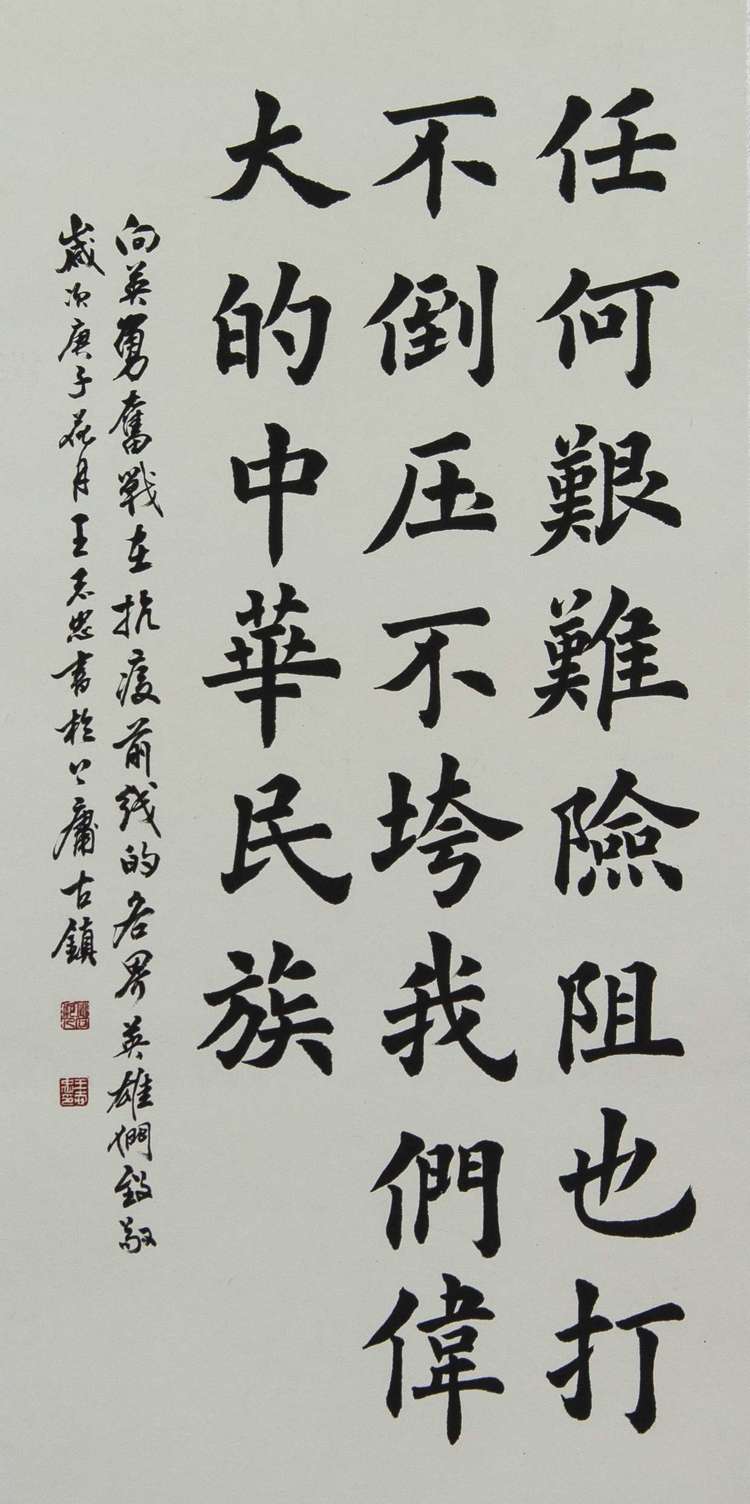 任何艱難險阻也打
不倒压不垮我們偉
大的中華民族
向英勇奮戰在抗疫前线的各界英雄們致敬
歲次庚子花月王志忠書於上庸古鎮